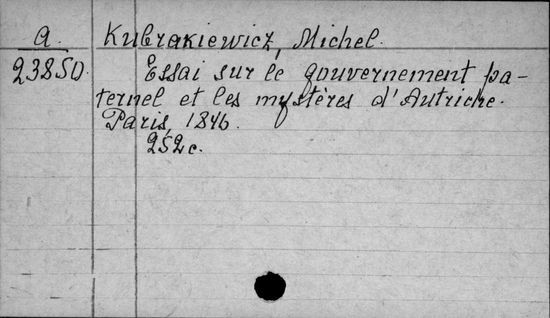 a. Kubrakiewicz, Michel.
23850. Essai sur le gouvernement pa-
ternel et les mystères d'Autriche.
Paris, 1846.
252 c.